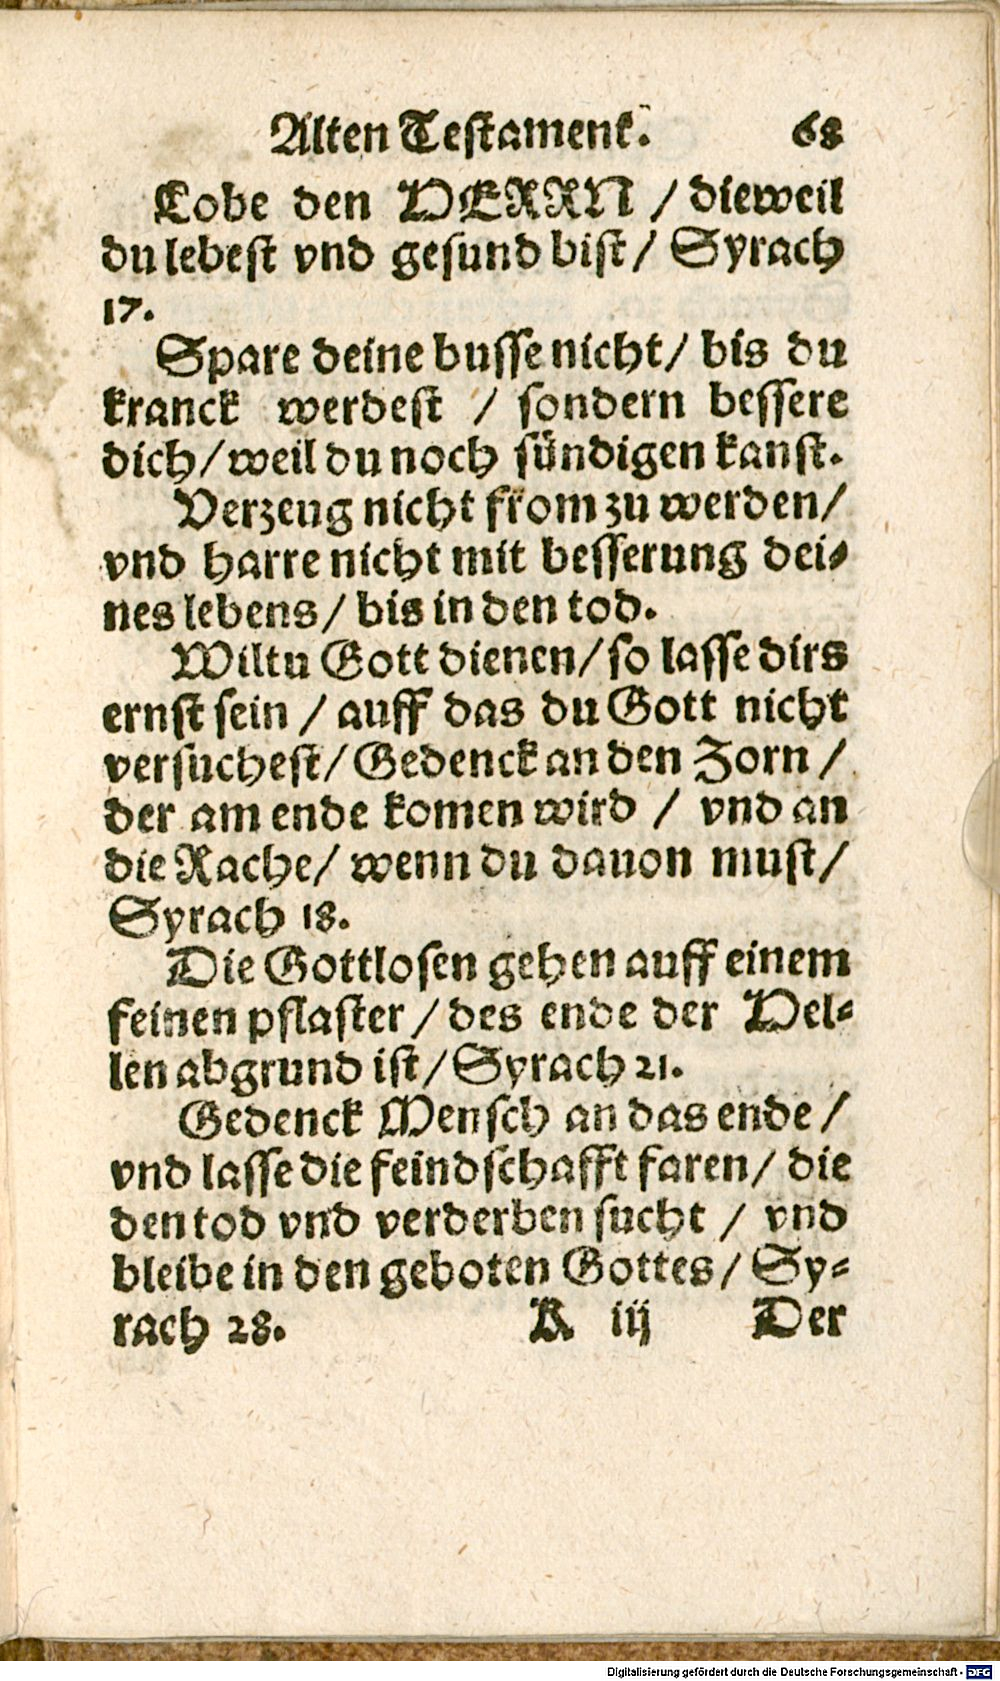 Alten Testament. 68
Lobe den HERRN / dieweil
du lebest vnd gesund bist / Syrach
17.
Spare deine busse nicht / bis du
kranck werdest / sondern bessere
dich / weil du noch sündigen kanst.
Verzeug nicht from zu werden /
vnd harre nicht mit besserung dei⸗
nes lebens / bis in den tod.
Wiltu Gott dienen / so lasse dirs
ernst sein / auff das du Gott nicht
versuchest / Gedenck an den Zorn /
der am ende komen wird / vnd an
die Rache / wenn du dauon must /
Syrach 18.
Die Gottlosen gehen auff einem
feinen pflaster / des ende der Hel⸗
len abgrund ist / Syrach 21.
Gedenck Mensch an das ende /
vnd lasse die feindschafft faren / die
den tod vnd verderben sucht / vnd
bleibe in den geboten Gottes / Sy⸗
rach 28. K iij Der
Digitalisierung gefördert durch die Deutsche Forschungsgemeinschaft - DFG